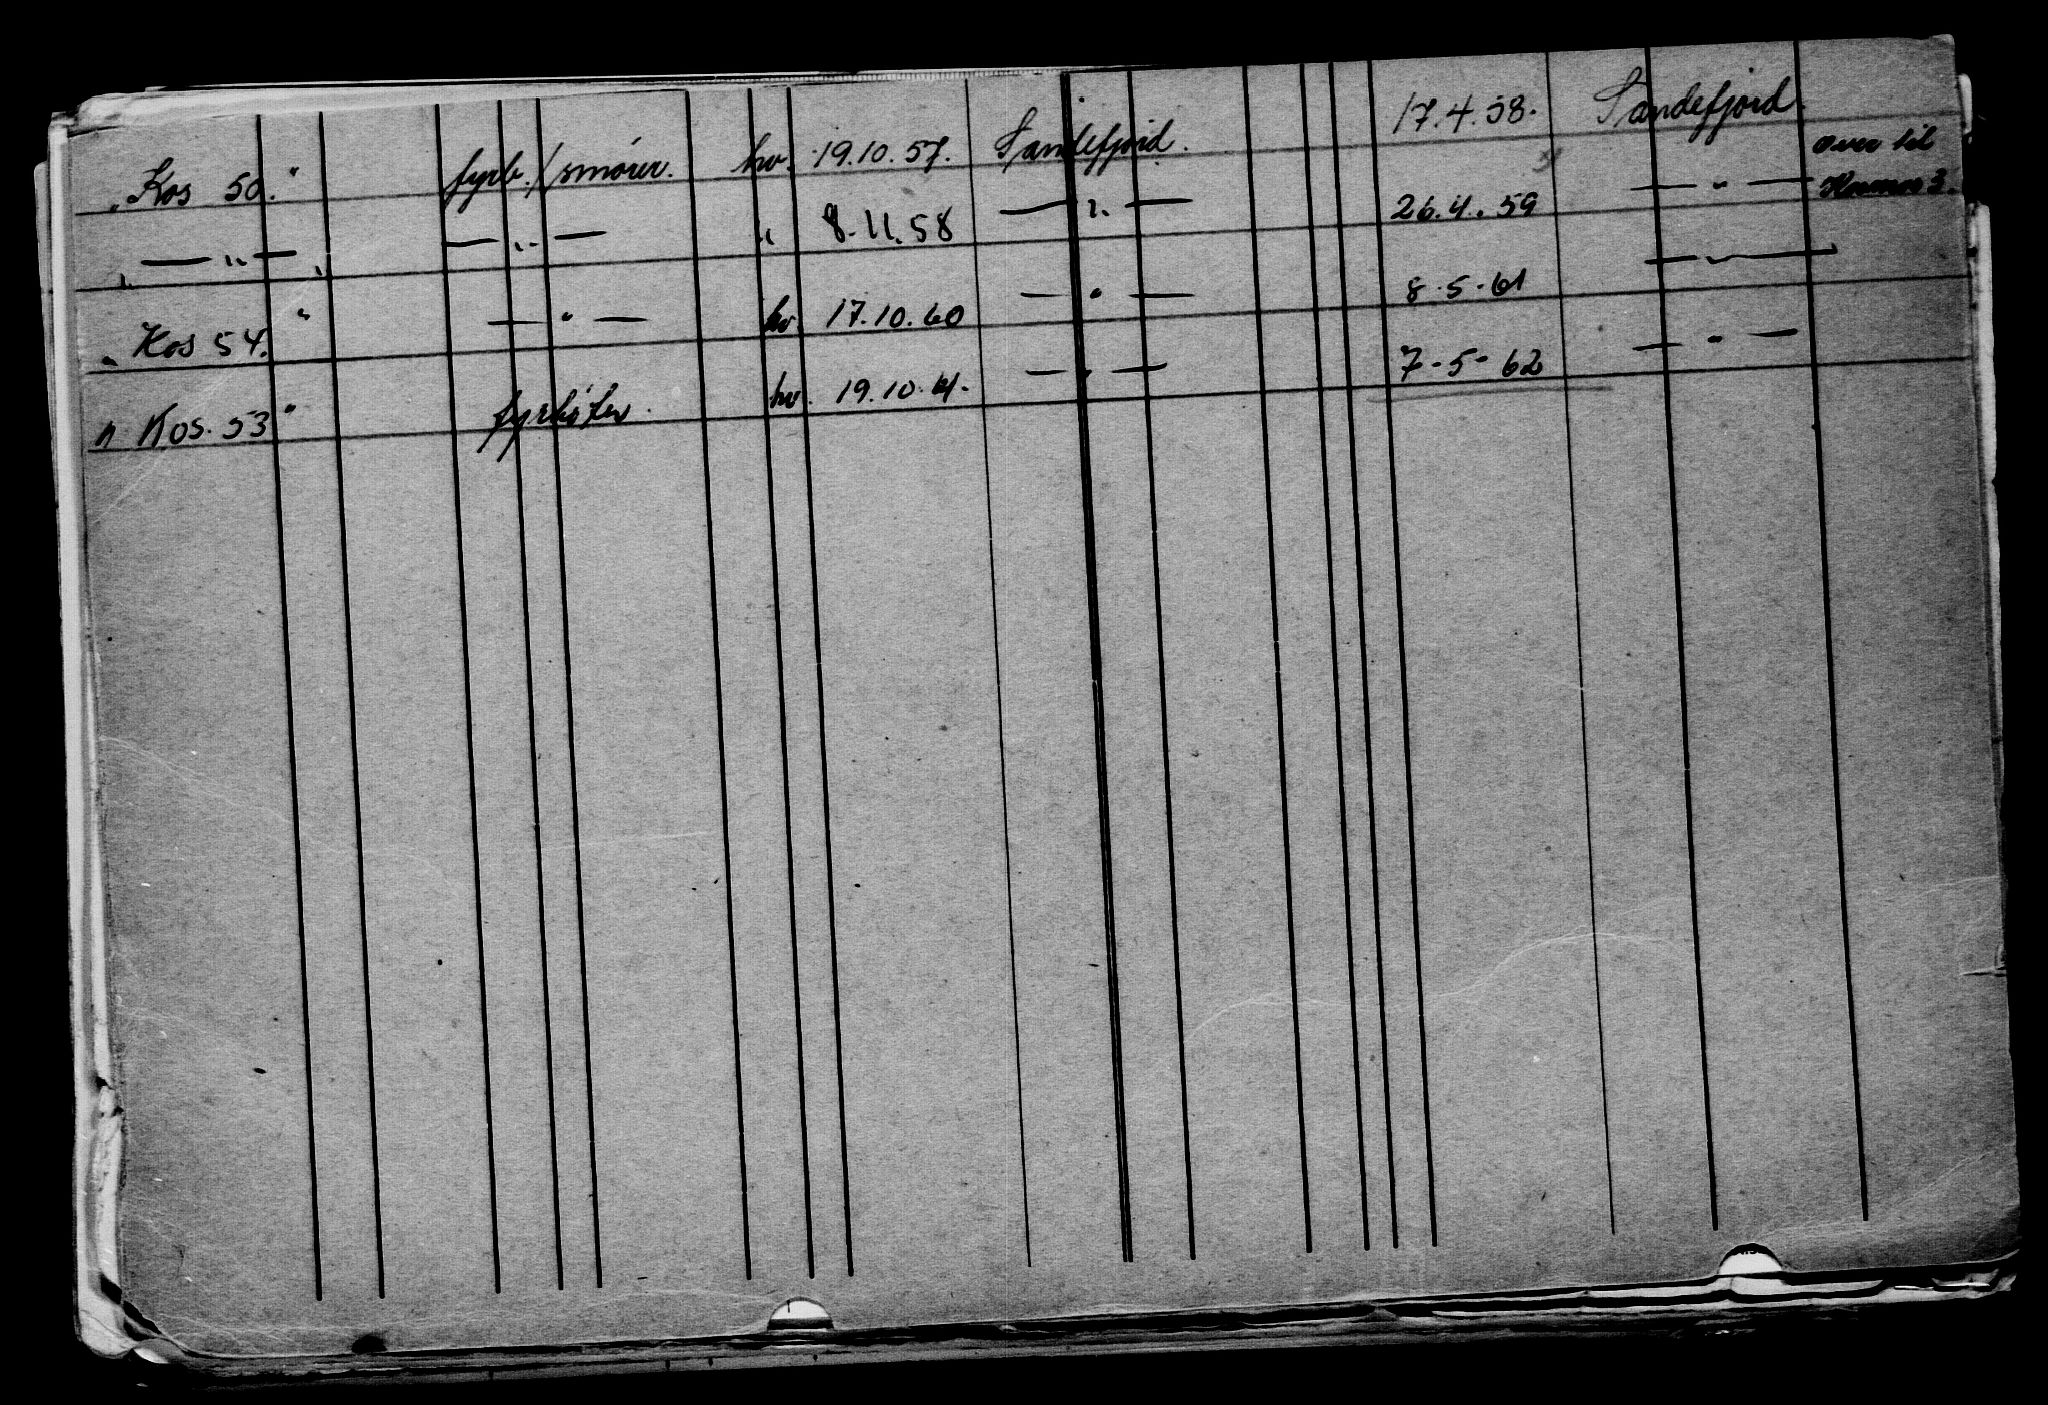 „Kos 50." fyrb./smører. hv. 19.10.57. Sandefjord. 17.4.58. Sandefjord.
over til
Kosmos 3.
„ — „ — „ — „ — „ 8.11.58 — „ — 26.4.59 — „ —
„Kos 54." — „ — hv. 17.10.60 — „ — 8-5-61 — „ —
„Kos. 53" fyrbøter. hv. 19.10.61. — „ — 7-5-62 — „ —